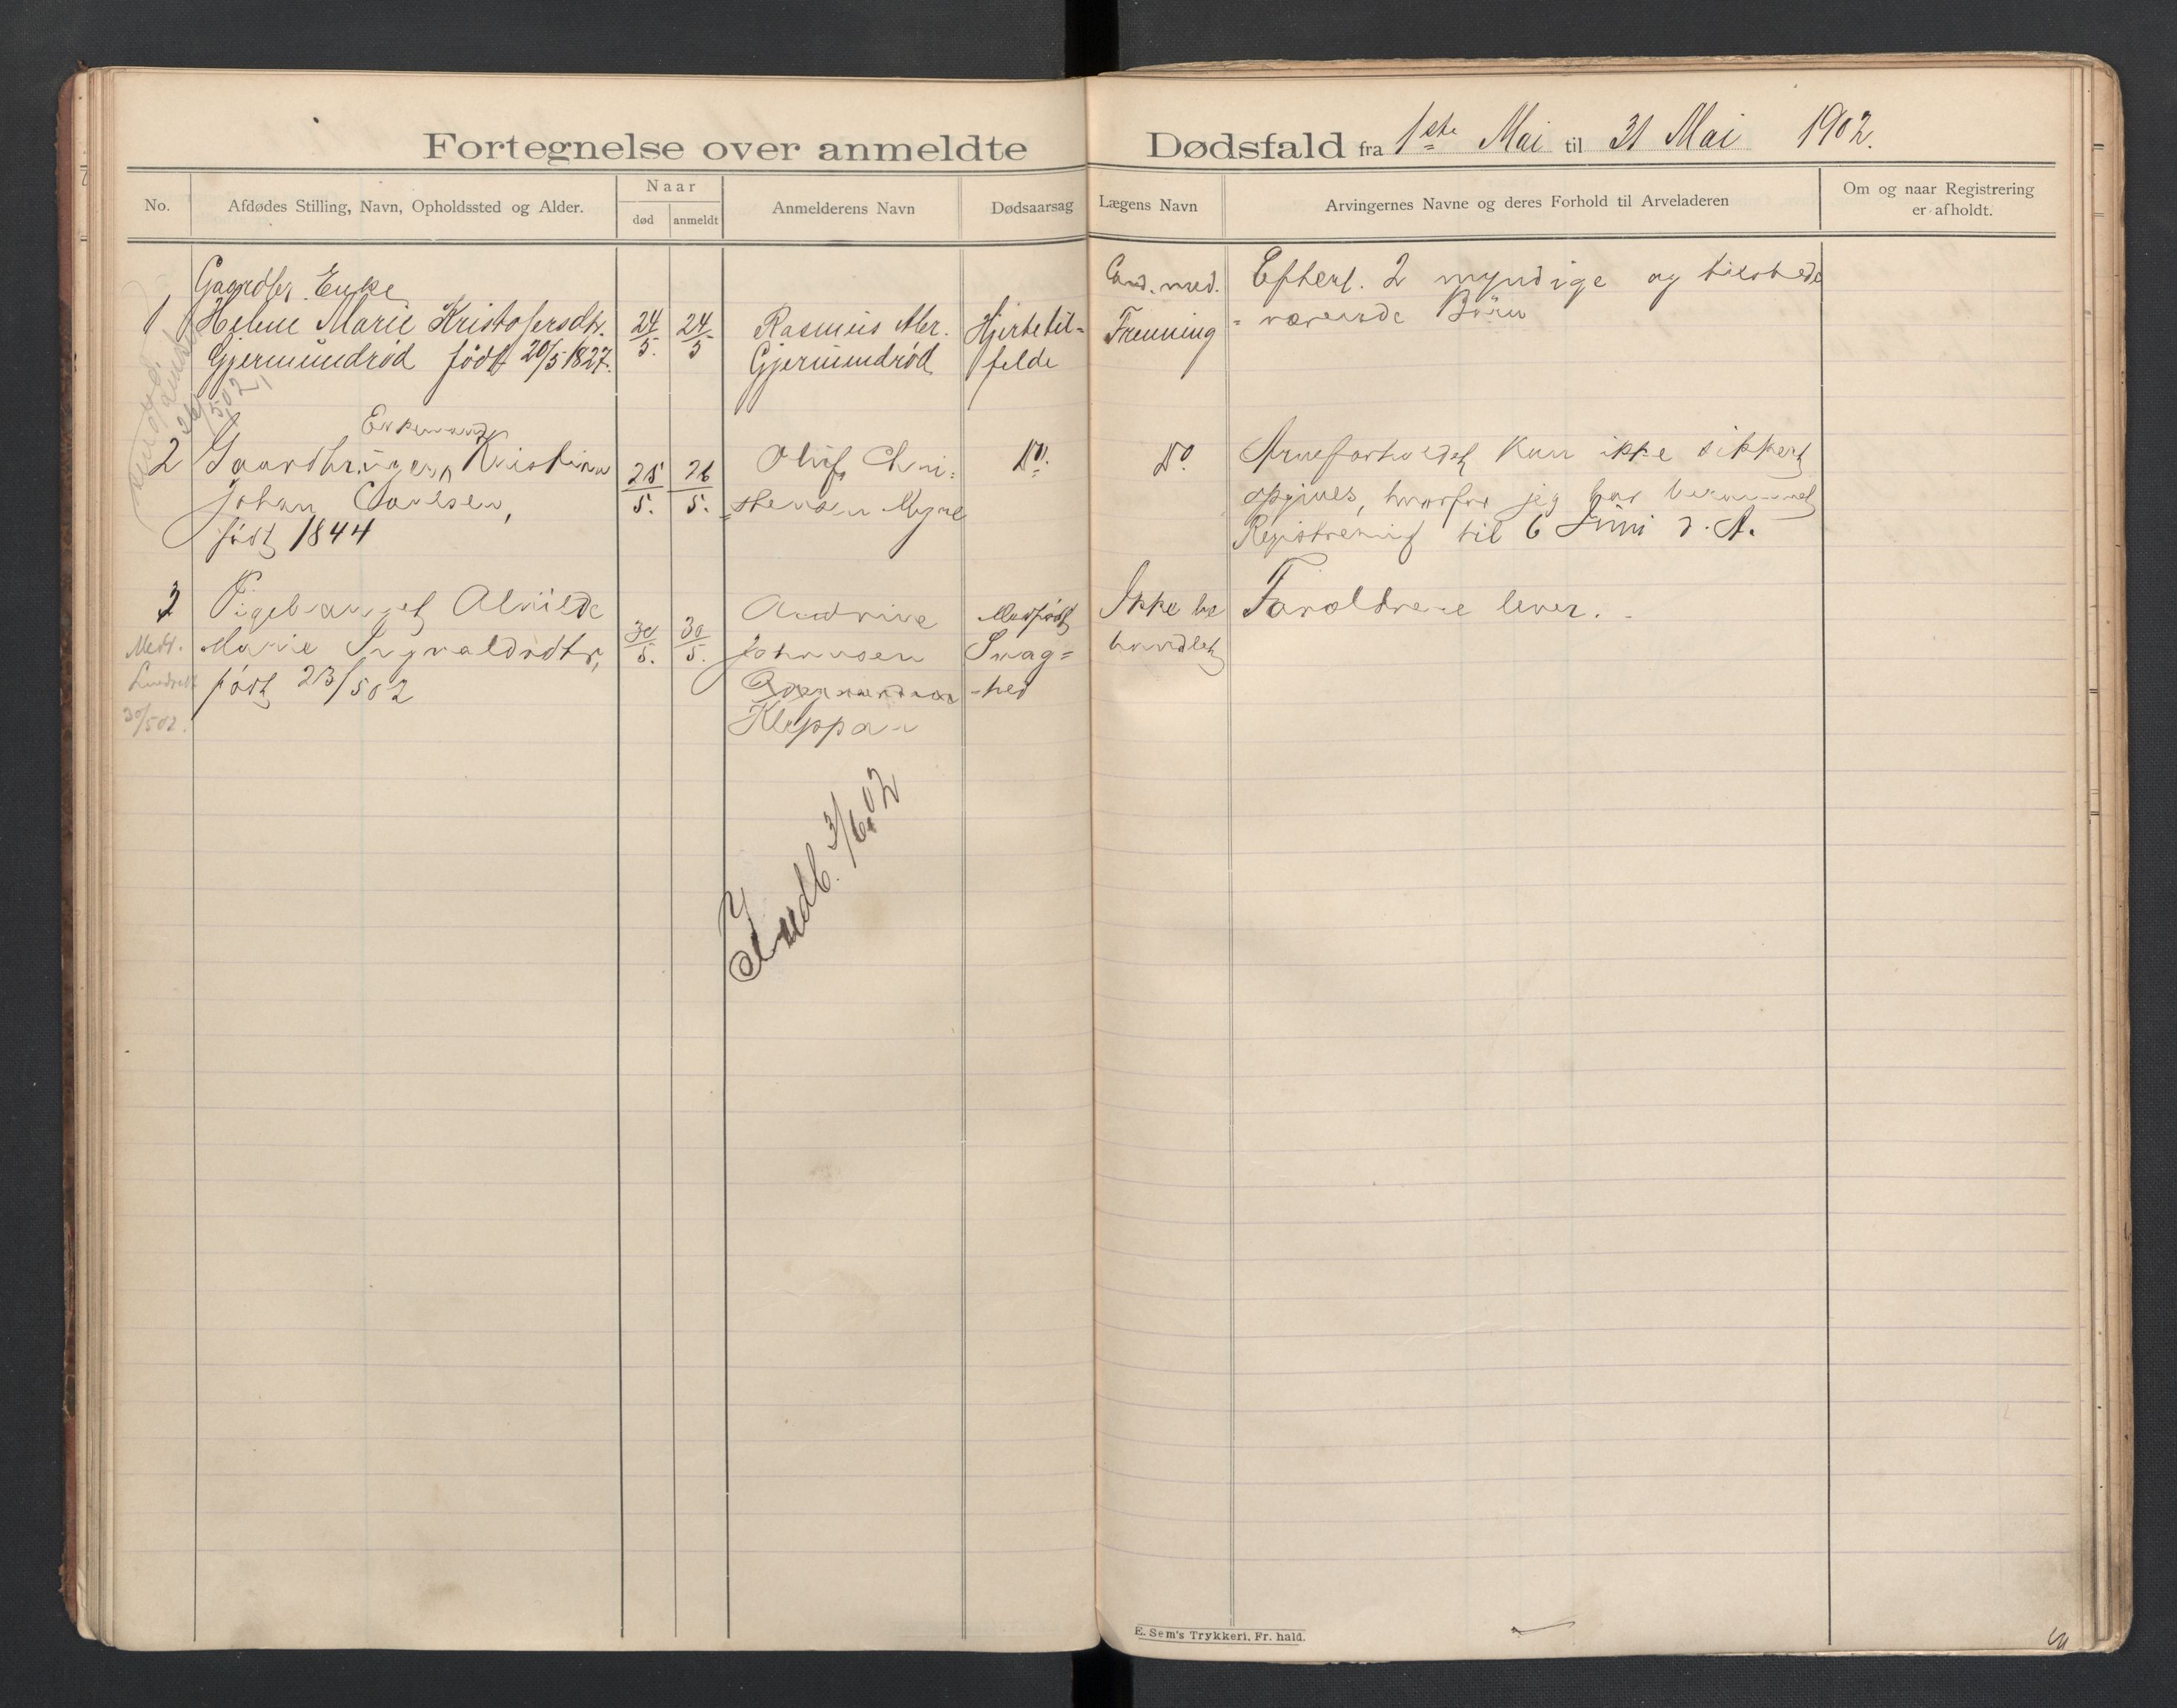 Fortegnelse over anmeldte Dødsfald fra 1ste Mai til 31 Mai 1902.
No.
Afdødes Stilling, Navn, Opholdssted og Alder.
Naar
død
anmeldt
Anmelderens Navn
Dødsaarsag
Lægens Navn
Arvingernes Navne og deres Forhold til Arveladeren
Om og naar Registrering
er afholdt.
1
Gaardbr. Enke
Helene Marie Kristofersdtr.
Gjermundrød født 20/5 1827.
24/5.
24/5
Rasmus Mer.
Gjermundrød
Hjertetil-
felde
Cand. med.
Frenning
Efterl. 2 myndige og tilstede
- værende Börn
2
Enkemand
Gaardbruger Kristian
Johan Carlsen,
født 1844
25/5.
26/5.
Oluf Chri-
stensen Myre
Do.
Do.
Arveforholdet kan ikke sikkert
opgives, hvorfor jeg har berammet
Registrering til 6 Juni d. A.
3
Pigebarnet Alvilde
Marie Sigvaldsdtr,
født 23/5 02
30/5.
30/5.
Andrine
Johansen
Kleppan
Medfødt
Svag=
-hed
Ikke be
handlet
Forældrene lever.
Medt.
30/5 02.
Indb. 3/6.02
E. Sem's Trykkeri, Fr. hald.